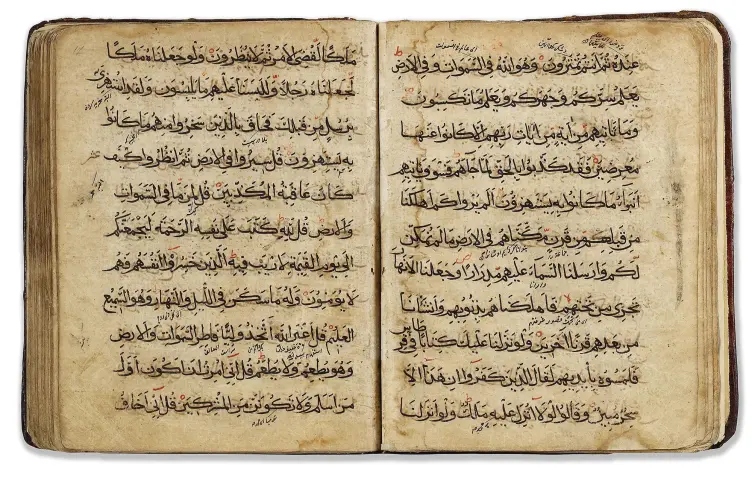 عنده ثم انتم تمترون وهو الله في السموات وفي الارض
يعلم سركم وجهركم ويعلم ما تكسبون
وما تاتيهم من اية من ايات ربهم الا كانوا عنها
معرضين فقد كذبوا بالحق لما جاهم فسوف ياتيهم
انباء ما كانوا به يستهزون الم يروا كم اهلكنا
من قبلهم من قرن مكناهم في الارض ما لم نمكن
لكم وارسلنا السماء عليهم مدرارا وجعلنا الانهار
تجري من تحتهم فاهلكناهم بذنوبهم وانشانا
من بعدهم قرنا اخرين ولو نزلنا عليك كتابا في قرطاس
فلمسوه بايديهم لقال الذين كفروا ان هذا الا
سحر مبين وقالوا لولا انزل عليه ملك ولو انزلنا
ملكا لقضي الامر ثم لا ينظرون ولو جعلناه ملكا
لجعلناه رجلا وللبسنا عليهم ما يلبسون ولقد استهزئ
برسل من قبلك فحاق بالذين سخروا منهم ما كانوا
به يستهزون قل سيروا في الارض ثم انظروا كيف
كان عاقبة المكذبين قل لمن ما في السموات
والارض قل لله كتب على نفسه الرحمة ليجمعنكم
الى يوم القيمة لا ريب فيه الذين خسروا انفسهم فهم
لا يومنون وله ما سكن في الليل والنهار وهو السميع
العليم قل اغير الله اتخذ وليا فاطر السموات والارض
وهو يطعم ولا يطعم قل اني امرت ان اكون اول
من اسلم ولا تكونن من المشركين قل اني اخاف